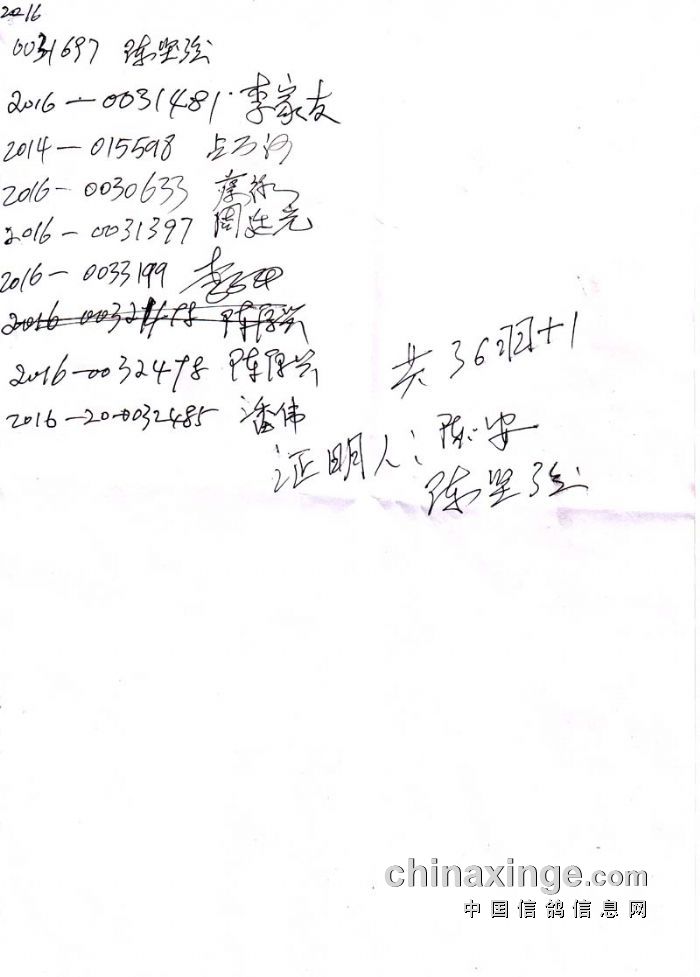 2016
0031697 陈坚强
2016-0031481 李家友
2014-015598
2016-0030633
2016-0031397 周廷光
2016-0033199 李
2016-003 78 陈厚兴
2016-0032478 陈厚兴
共36羽+1
2016-20-0032485 潘伟
证明人: 陈安
陈坚强
chinaxinge.com
中国信鸽信息网